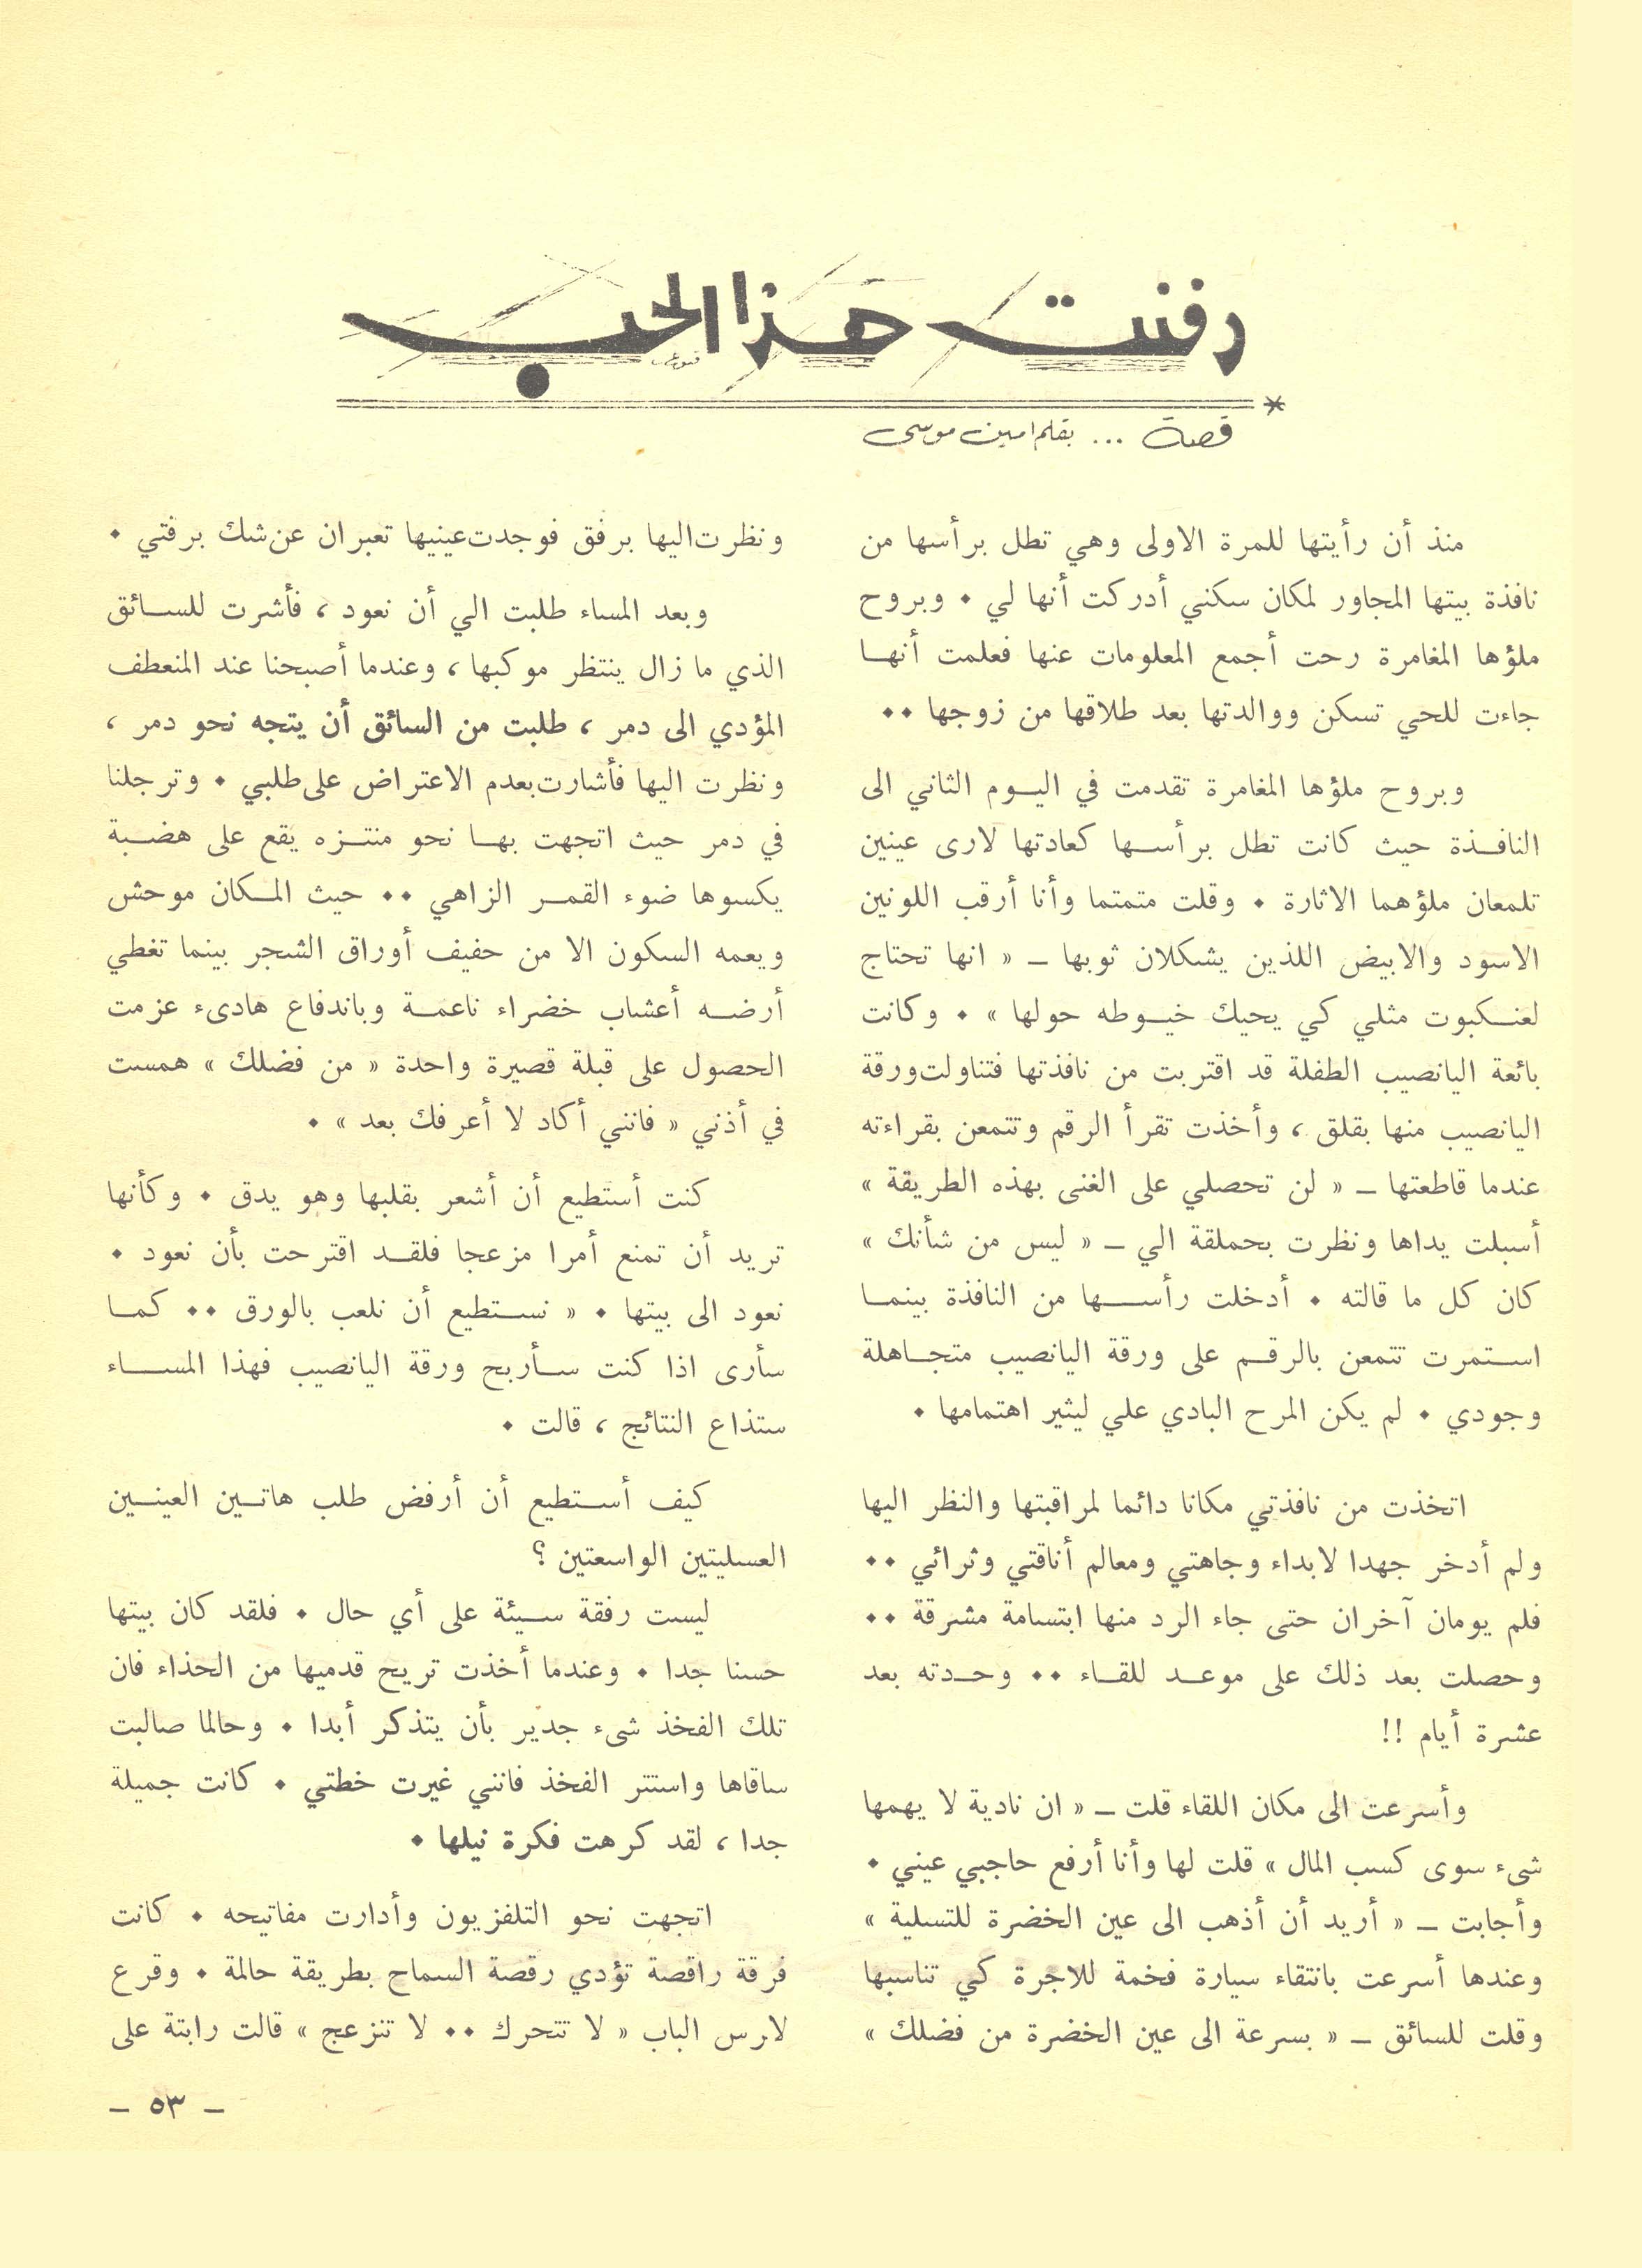 دفنت هذا الحب
قصة ... بقلم امين موسى
منذ أن رأيتها للمرة الاولى وهي تطل برأسها من
نافذة بيتها المجاور لمكان سكني أدركت أنها لي . وبروح
ملؤها المغامرة رحت أجمع المعلومات عنها فعلمت أنها
جاءت للحي تسكن ووالدتها بعد طلاقها من زوجها ..
وبروح ملؤها المغامرة تقدمت في اليوم الثاني الى
النافذة حيث كانت تطل برأسها كعادتها لارى عينين
تلمعان ملؤهما الاثارة . وقلت متمتما وأنا أرقب اللونين
الاسود والابيض اللذين يشكلان ثوبها ـ « انها تحتاج
لعنكبوت مثلي كي يحيك خيوطه حولها » . وكانت
بائعة اليانصيب الطفلة قد اقتربت من نافذتها فتناولت ورقة
اليانصيب منها بقلق ، وأخذت تقرأ الرقم وتتمعن بقراءته
عندما قاطعتها ـ « لن تحصلي على الغنى بهذه الطريقة »
أسبلت يداها ونظرت بحملقة الي ـ « ليس من شأنك »
كان كل ما قالته . أدخلت رأسها من النافذة بينما
استمرت تتمعن بالرقم على ورقة اليانصيب متجاهلة
وجودي . لم يكن المرح البادي علي ليثير اهتمامها .
اتخذت من نافذتي مكانا دائما لمراقبتها والنظر اليها
ولم أدخر جهدا لابداء وجاهتي ومعالم أناقتي وثرائي ..
فلم يومان آخران حتى جاء الرد منها ابتسامة مشرقة ..
وحصلت بعد ذلك على موعد للقاء .. وحدته بعد
عشرة أيام !!
وأسرعت الى مكان اللقاء قلت ـ « ان نادية لا يهمها
شيء سوى كسب المال » قلت لها وأنا أرفع حاجبي عيني .
وأجابت ـ « أريد أن أذهب الى عين الخضرة للتسلية »
وعندها أسرعت بانتقاء سيارة فخمة للاجرة كي تناسبها
وقلت للسائق ـ « بسرعة الى عين الخضرة من فضلك »
ونظرت اليها برفق فوجدت عينيها تعبران عن شك برفقتي .
وبعد المساء طلبت الي أن نعود ، فأشرت للسائق
الذي ما زال ينتظر موكبها ، وعندما أصبحنا عند المنعطف
المؤدي الى دمر ، طلبت من السائق أن يتجه نحو دمر ،
ونظرت اليها فأشارت بعدم الاعتراض على طلبي . وترجلنا
في دمر حيث اتجهت بها نحو منتزه يقع على هضبة
يكسوها ضوء القمر الزاهي .. حيث المكان موحش
ويعمه السكون الا من حفيف أوراق الشجر بينما تغطي
أرضه أعشاب خضراء ناعمة وباندفاع هادىء عزمت
الحصول على قبلة قصيرة واحدة « من فضلك » همست
في أذني « فانني أكاد لا أعرفك بعد » .
كنت أستطيع أن أشعر بقلبها وهو يدق . وكأنها
تريد أن تمنع أمرا مزعجا فلقد اقترحت بأن نعود .
نعود الى بيتها . « نستطيع أن نلعب بالورق .. كما
سأرى اذا كنت سأربح ورقة اليانصيب فهذا المساء
ستذاع النتائج ، قالت .
كيف أستطيع أن أرفض طلب هاتين العينين
العسليتين الواسعتين ؟
ليست رفقة سيئة على أي حال . فلقد كان بيتها
حسنا جدا . وعندما أخذت تريح قدميها من الحذاء فان
تلك الفخذ شيء جدير بأن يتذكر أبدا . وحالما صالبت
ساقاها واستتر الفخذ فانني غيرت خطتي . كانت جميلة
جدا ، لقد كرهت فكرة نيلها .
اتجهت نحو التلفزيون وأدارت مفاتيحه . كانت
فرقة راقصة تؤدي رقصة السماح بطريقة حالمة . وقرع
لارس الباب « لا تتحرك .. لا تنزعج » قالت رابتة على
ـ ٥٣ ـ